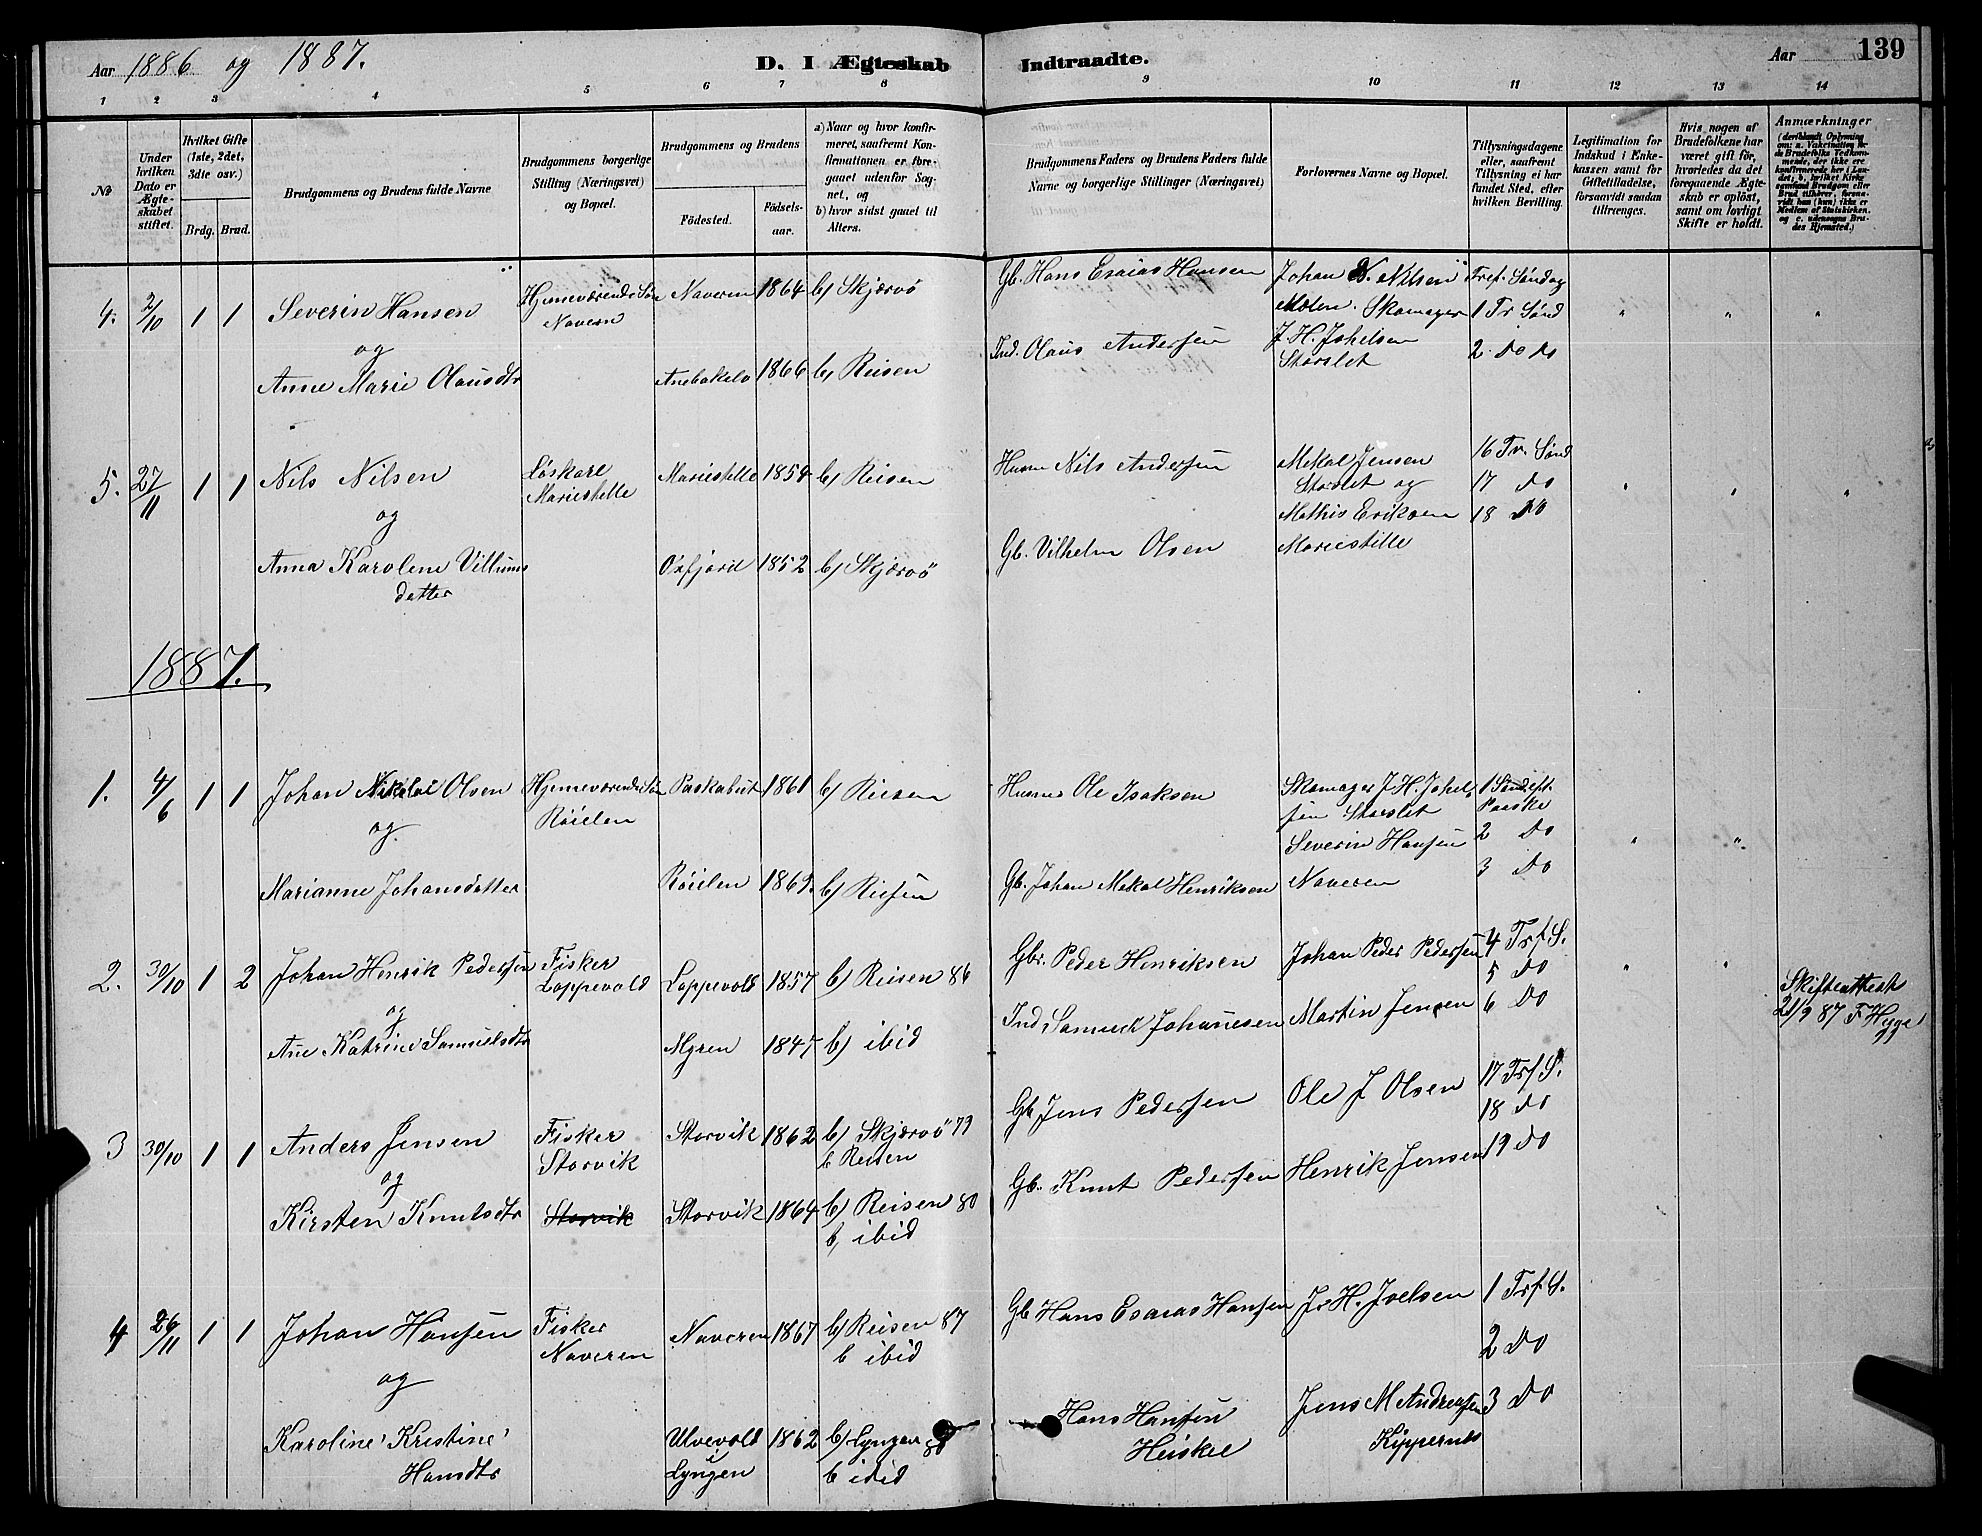 Aar 1886 og 1887.
D. I Ægteskab Indtraadte.
Aar 139
1 2 3 4 5 6 7 8 9 10 11 12 13 14
No
Under hvilken Dato er Ægteskabet stiftet.
Hvilket Gifte (1ste, 2det, 3die osv.)
Brdg. Brud.
Brudgommens og Brudens fulde Navne
Brudgommens borgerlige Stilling (Næringsvei) og Bopæl.
Brudgommens og Brudens
Fødested.
Fødselsaar.
a) Naar og hvor konfirmeret, saafremt Konfirmationen er foregaaet udenfor Sognet, og
b) hvor sidst gaaet til Alters.
Brudgommens Faders og Brudens Faders fulde Navne og borgerlige Stillinger (Næringsvei)
Forlovernes Navne og Bopæl.
Tillysningsdagene eller, saafremt Tillysning ei har fundet Sted, efter hvilken Bevilling.
Legitimation for Indskud i Enkekassen samt for Giftetilladelse, forsaavidt saadan tiltrænges.
Hvis nogen af Brudefolkene har været gift før, hvorledes da det foregaaende Ægteskab er opløst, samt om lovligt Skifte er holdt.
Anmærkninger
4. 2/10 1 1 Severin Hansen
og
Anne Marie Olausdtr
Hjemeværende Søn
Navern
Naveren 1864 b) Skjærvö
1866 b) Reisen
Gb. Hans Esaias Hansen
Ind. Olaus Andersen
Johan N. Nilsen
Skomager
J. H. Johelsen
Storslet
Tref. Søndag
1 Tr Sønd
2. Do Do
5. 27/11 1 1 Nils Nilsen
og
Anna Karolene Villums
datter
Løskarl
Mariestelle
Mariestelle 1854 b) Reisen
Oxfjord 1852 b) Skjærvö
Husm Nils Andersen
Gb. Vilhelm Olsen
Mekal Jensen
Storslet og
Mathis Eriksen
Mariestille
16 Tr. Sønd
17 Do
18 Do
1887.
1. 4/6 1 1 Johan Nikolai Olsen
og
Marianne Johansdatter
Hjemeværende Søn
Röielen
Paskabut 1861 b) Reisen
Röielen 1869. b) Reisen
Husm Ole Isaksen
Gb. Johan Mekal Henriksen
Skomager J. H. Johel
sen Storslet
Severin Hansen
Naveren
1 Sønd. eft.
Paaske
2 Do
3 Do
2. 30/10 1 2 Johan Henrik Pedersen
og
Ane Katrine Samuelsdtr
Fisker
Loppevold
Loppevold 1857 b) Reisen 86
Myren 1847 b) ibid
Gbr. Peder Henriksen
Ind. Samuel Johanesen
Johan Peder Pedersen
Martin Jensen
4 Trf S.
5 Do
6 Do
Skifteattest
21/9 87 F Hyge
3 30/10 1 1 Anders Jensen
og
Kirsten Knutsdtr
Fisker
Storvik
Storvik
Storvik 1862 b) Skjærvö 79
b Reisen
Storvik 1864 b) Reisen 80
b, ibid
Gb Jens Pedersen
Gb. Knut Pedersen
Ole J Olsen
Henrik Jensen
17 Trf S.
18 Do
19 Do
4 26/11 1 1 Johan Hansen
og
Karoline Kristine
Hansdtr
Fisker
Naveren
Naveren 1867 b) Reisen 87
b ibid
Ulvevold
Lyngen
1862 b) Lyngen 80
b ibid
Gb Hans Esaias Hansen
Hans Hansen
Heiskel
J. H. Joelsen
Jens M Andreasen
Kippernes
1 Trf S.
2 Do
3 Do